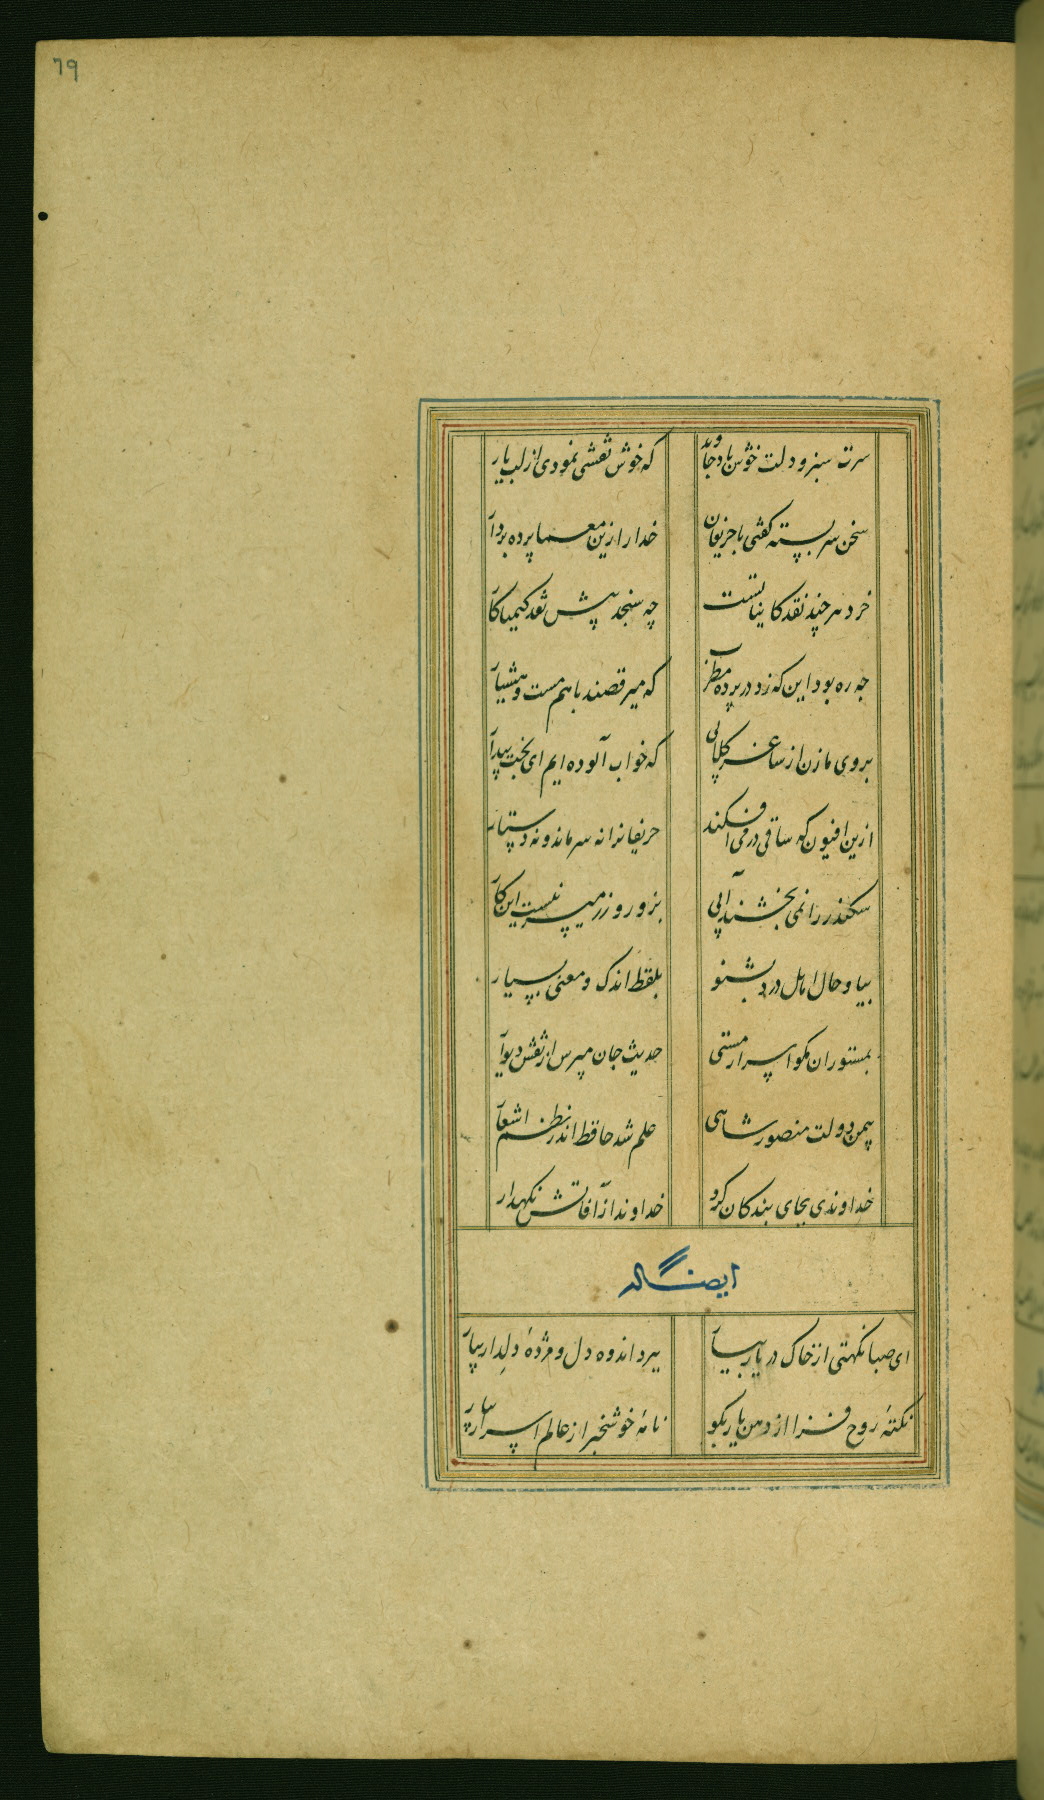 79
سرت سبز و دلت خوش باد جاوید که خوش نقشی نمودی از لب یار
سخن سربسته کفتی با حریفان خدارا زین معما پرده بردار
خرد هر چند نقد کایناتست چه سنجد پیش نقد کیمیا کار
چه ره بود این که زد در پرده مطرب که میرقصند با هم مست و هشیار
بروی ما زن از ساغر کلابی که خواب آلوده ایم ای بخت بیدار
ازین افیون که ساقی در می افکند حریفانرا نه سر ماند و نه دستار
سکندر را نمی بخشند آبی بزور و زر میسر نیست این کار
بیا و حال اهل درد بشنو بلفظ اندک و معنی بسیار
بمستوران مکو اسرار مستی حدیث جان مپرس از نقش دیوار
بیمن دولت منصور شاهی علم شد حافظ اندر نظم اشعار
خداوندی بجای بندکان کرد خداوندا ز آفاتش نکهدار
ایضا له
ای صبا نکهتی از خاک در یار بیار ببر اندوه دل و مژدهٔ دلدار بیار
نکتهٔ روح فزا از دهن یار بکو نامهٔ خوشخبر از عالم اسرار بیار